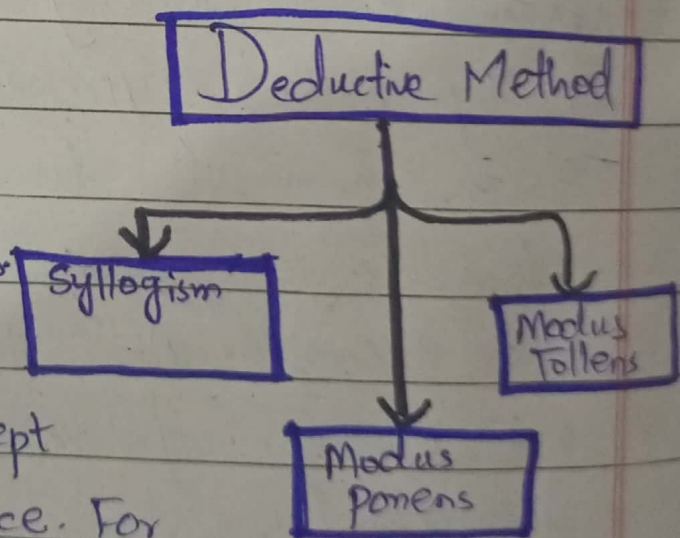 Deductive Method
Syllogism
Modus
Tollens
Modus
Ponens
ept
ce. For